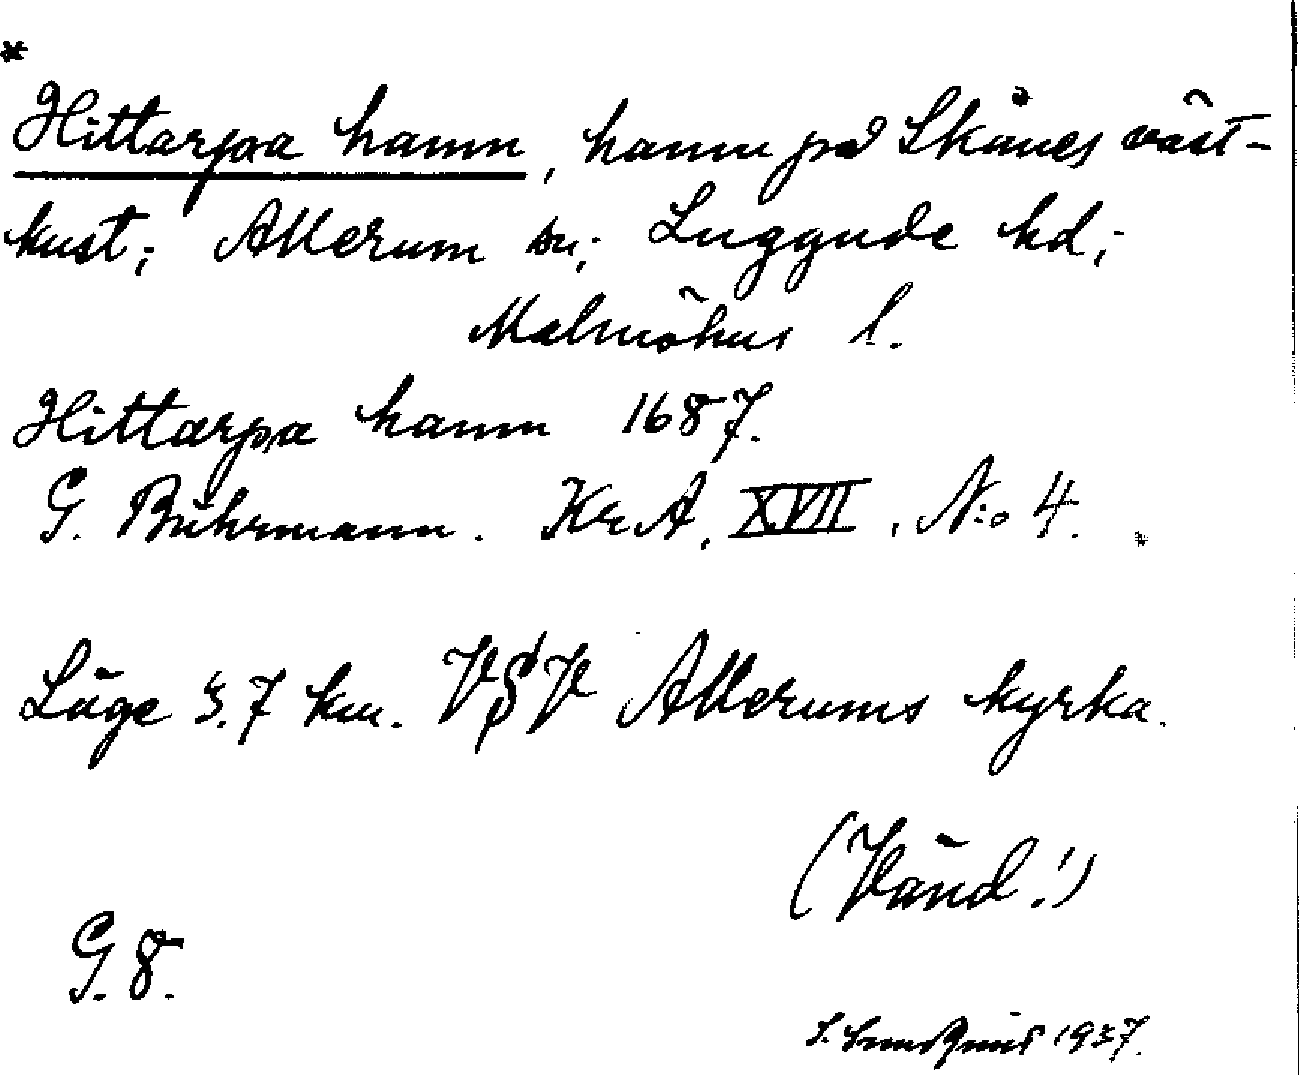 *
Hittarpa hamn, hamn på Skånes väst-
kust; Allerum sn; Luggude hd;
Malmöhus l.
Hittarpa hamn 1687.
G. Buhrmann. Kr.A. XVII. N:o 4. *
Läge 3.7 km. VSV Allerums kyrka.
(Vänd!)
G. 8.
S. Lundquist 1937.